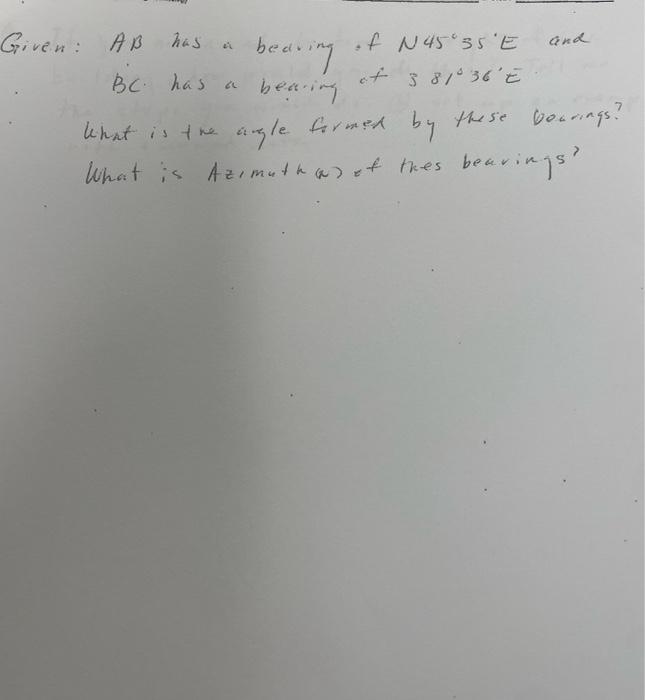 Given: AB has a bearing of N45°35'E and
BC has a bearing of S 81°36'E
What is the angle formed by these bearings?
What is Azimuth(s) of thes bearings?